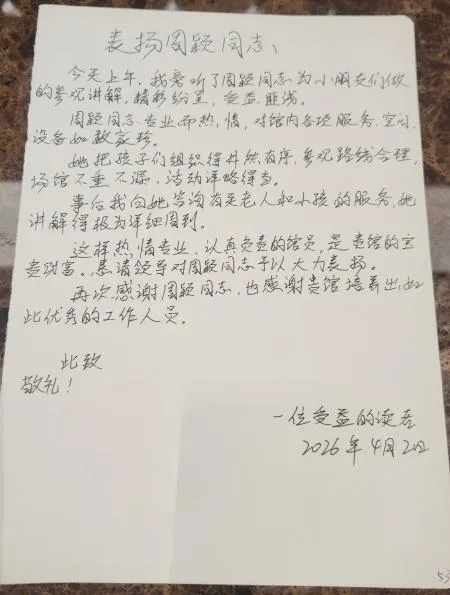 表扬周颖同志、
今天上午，我旁听了周颖同志为小朋友们做
的参观讲解，精彩纷呈，受益匪浅。
周颖同志专业而热情，对馆内各项服务、空间、
设备如数家珍。
她把孩子们组织得井然有序，参观路线合理，
场馆不重不漏，活动详略得当。
事后我向她咨询有关老人和小孩的服务，她
讲解得极为详细周到。
这样热情专业、认真负责的馆员，是贵馆的宝
贵财富。恳请领导对周颖同志予以大力表扬。
再次感谢周颖同志，也感谢贵馆培养出如
此优秀的工作人员。
此致
敬礼！
一位受益的读者
2026年4月2日
53